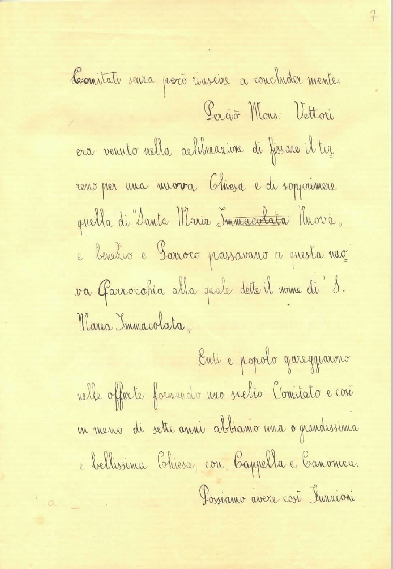 7
Comitato senza però riuscire a concluder niente.
Perciò Mons. Vettori
era venuto nella deliberazione di fissare il ter
reno per una nuova Chiesa e di sopprimere
quella di "Santa Maria Immacolata Nuova„
e beneficio e Parroco passavano a questa nuo
va Parrocchia alla quale dette il nome di "S.
Maria Immacolata„
Enti e popolo gareggiarono
nelle offerte formando uno scelto Comitato e così
in meno di sette anni abbiamo una grandissima
e bellissima Chiesa con Cappella e Canonica.
Possiamo avere così funzioni